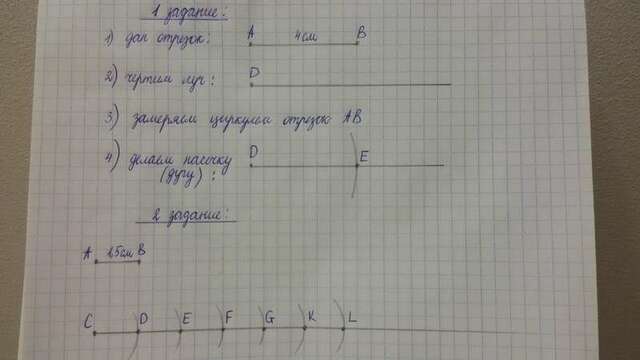 1 задание:
1) дан отрезок: A 4см B
2) чертим луч: D
3) замеряем циркулем отрезок AB
4) делаем насечку D E
(дугу):
2 задание:
A 1,5см B
C D E F G K L